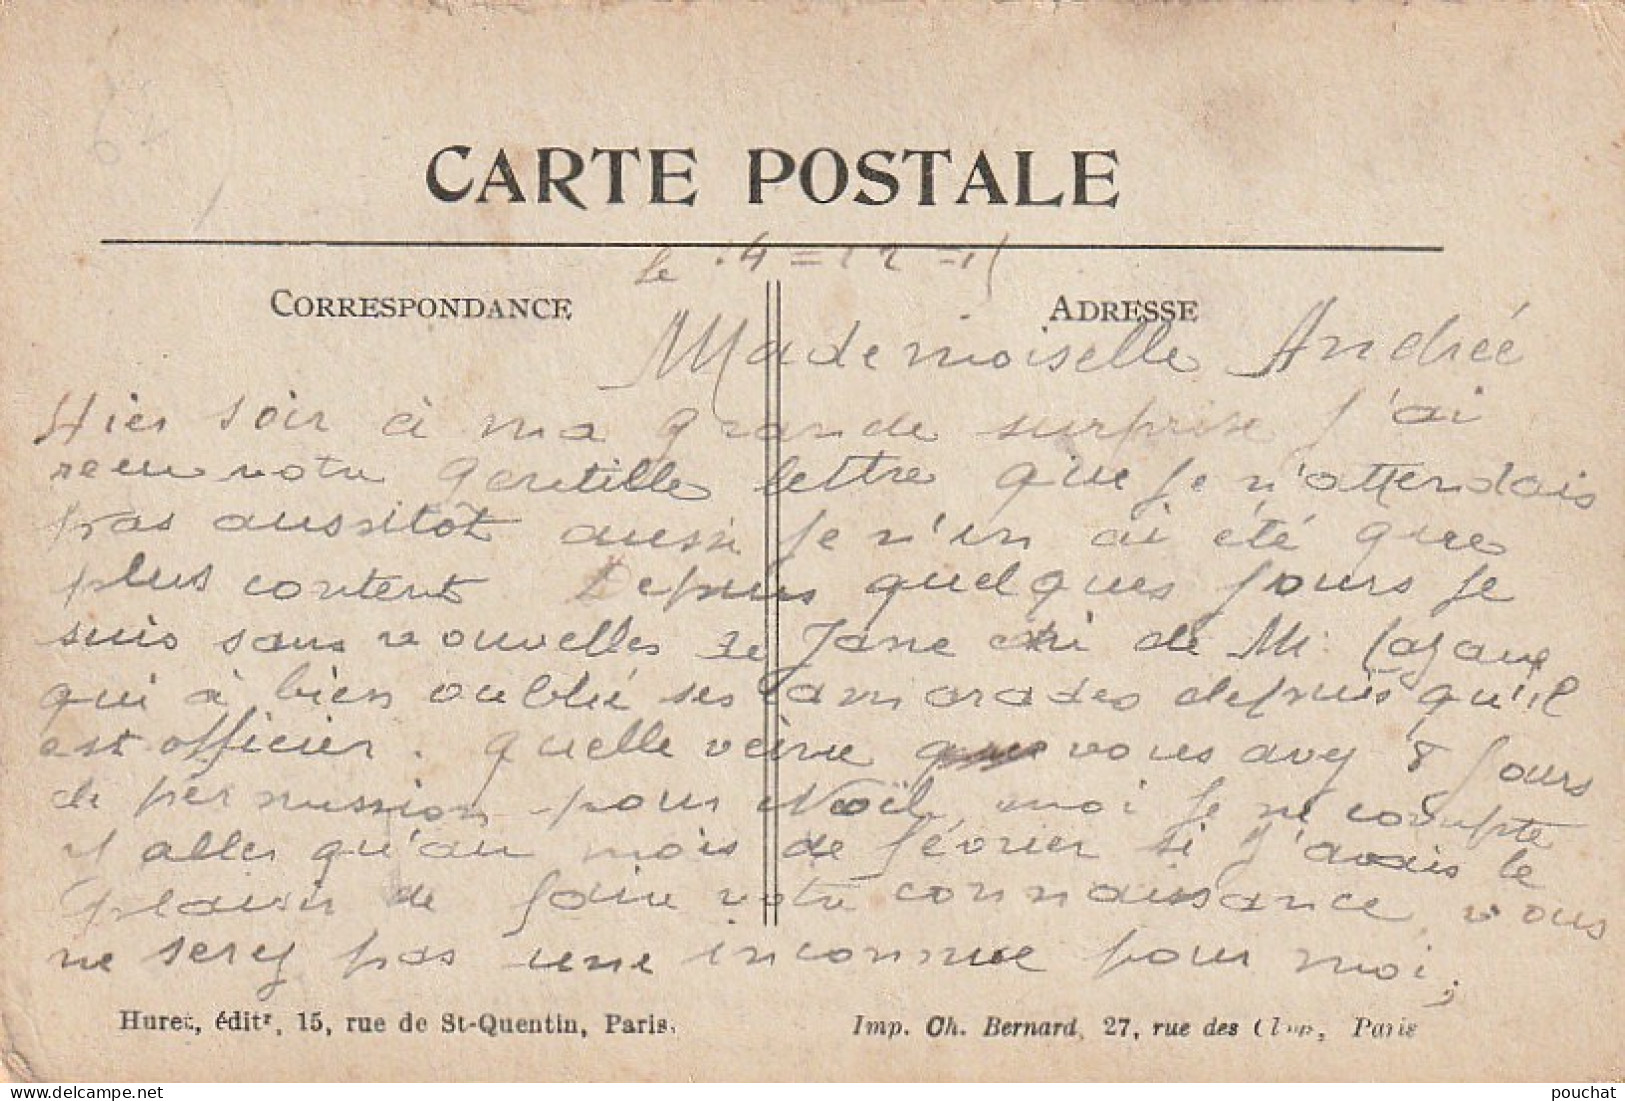 62
CARTE POSTALE
le 14=12=15
CORRESPONDANCE
ADRESSE
Mademoiselle Andrée
Hier soir à ma grande surprise j'ai
recu votre gentille lettre que je n'attendais
pas aussitôt aussi je n'en ai été que
plus content Depuis quelques jours je
suis sans nouvelles de Jane ni de M.
qui à bien oublié ses camarades depuis qu'il
est officier. quelle veine que vous avez 8 jours
de permission pour Noël, moi je ne compte
y aller qu'au mois de février si j'avais le
plaisir de faire votre connaissance, vous
ne serez pas une inconnue pour moi,
Huret, édit^r, 15, rue de St-Quentin, Paris.
Imp. Ch. Bernard, 27, rue des Cloys, Paris
pouchat